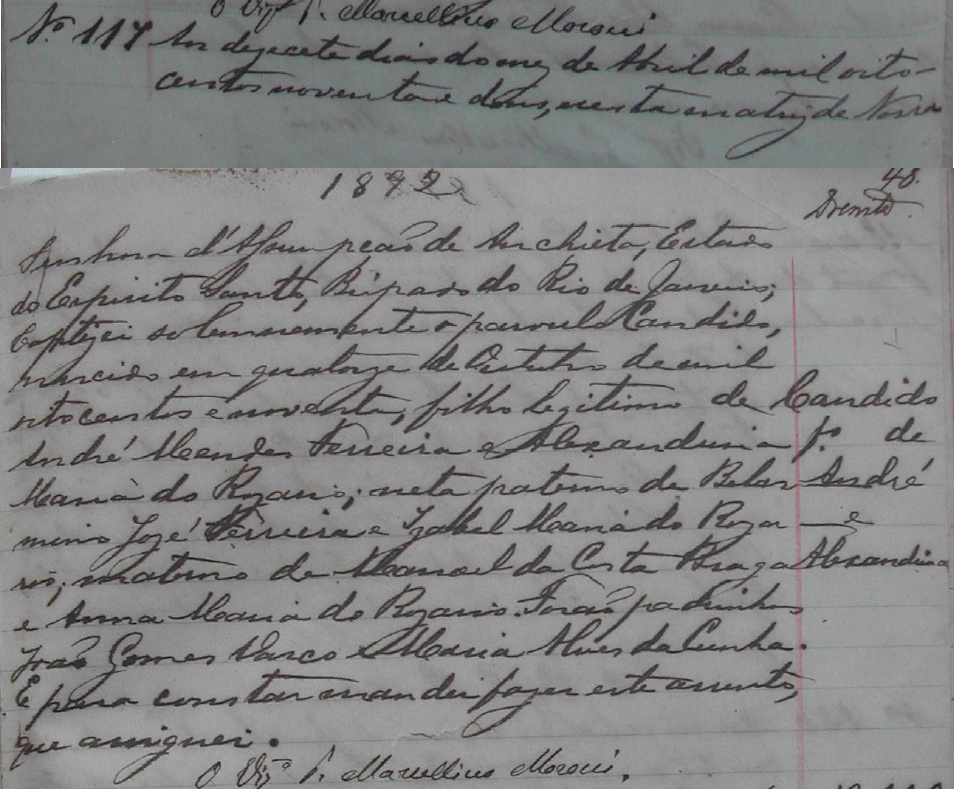 O Vigº P. Marcellino Moroni
Nº 117 Aos dezecete dias do mez de Abril de mil oito-
centos noventa e dous, nesta matriz de Nossa
1892
48.
Senhora d'Assumpção de Anchieta, Estado
do Espirito Santo, Bispado do Rio de Janeiro,
baptizei solemnemente o parvulo Candido,
nascido em quatorze de Outubro de mil
oitocentos e noventa, filho legitimo de
André Mendes Ferreira e Alexandrina
Maria do Rozario; neto paterno de Belar
mino José Ferreira e Izabel Maria do Roza
rio; materno de Manoel da Costa Braga
e Anna Maria do Rozario. Forão padrinhos
João Gomes Vasco e Maria Alves da Cunha.
E para constar mandei fazer este assento,
que assignei.
O Vigº P. Marcellino Moroni.
Candido
fº de
André
e
Alexandrina